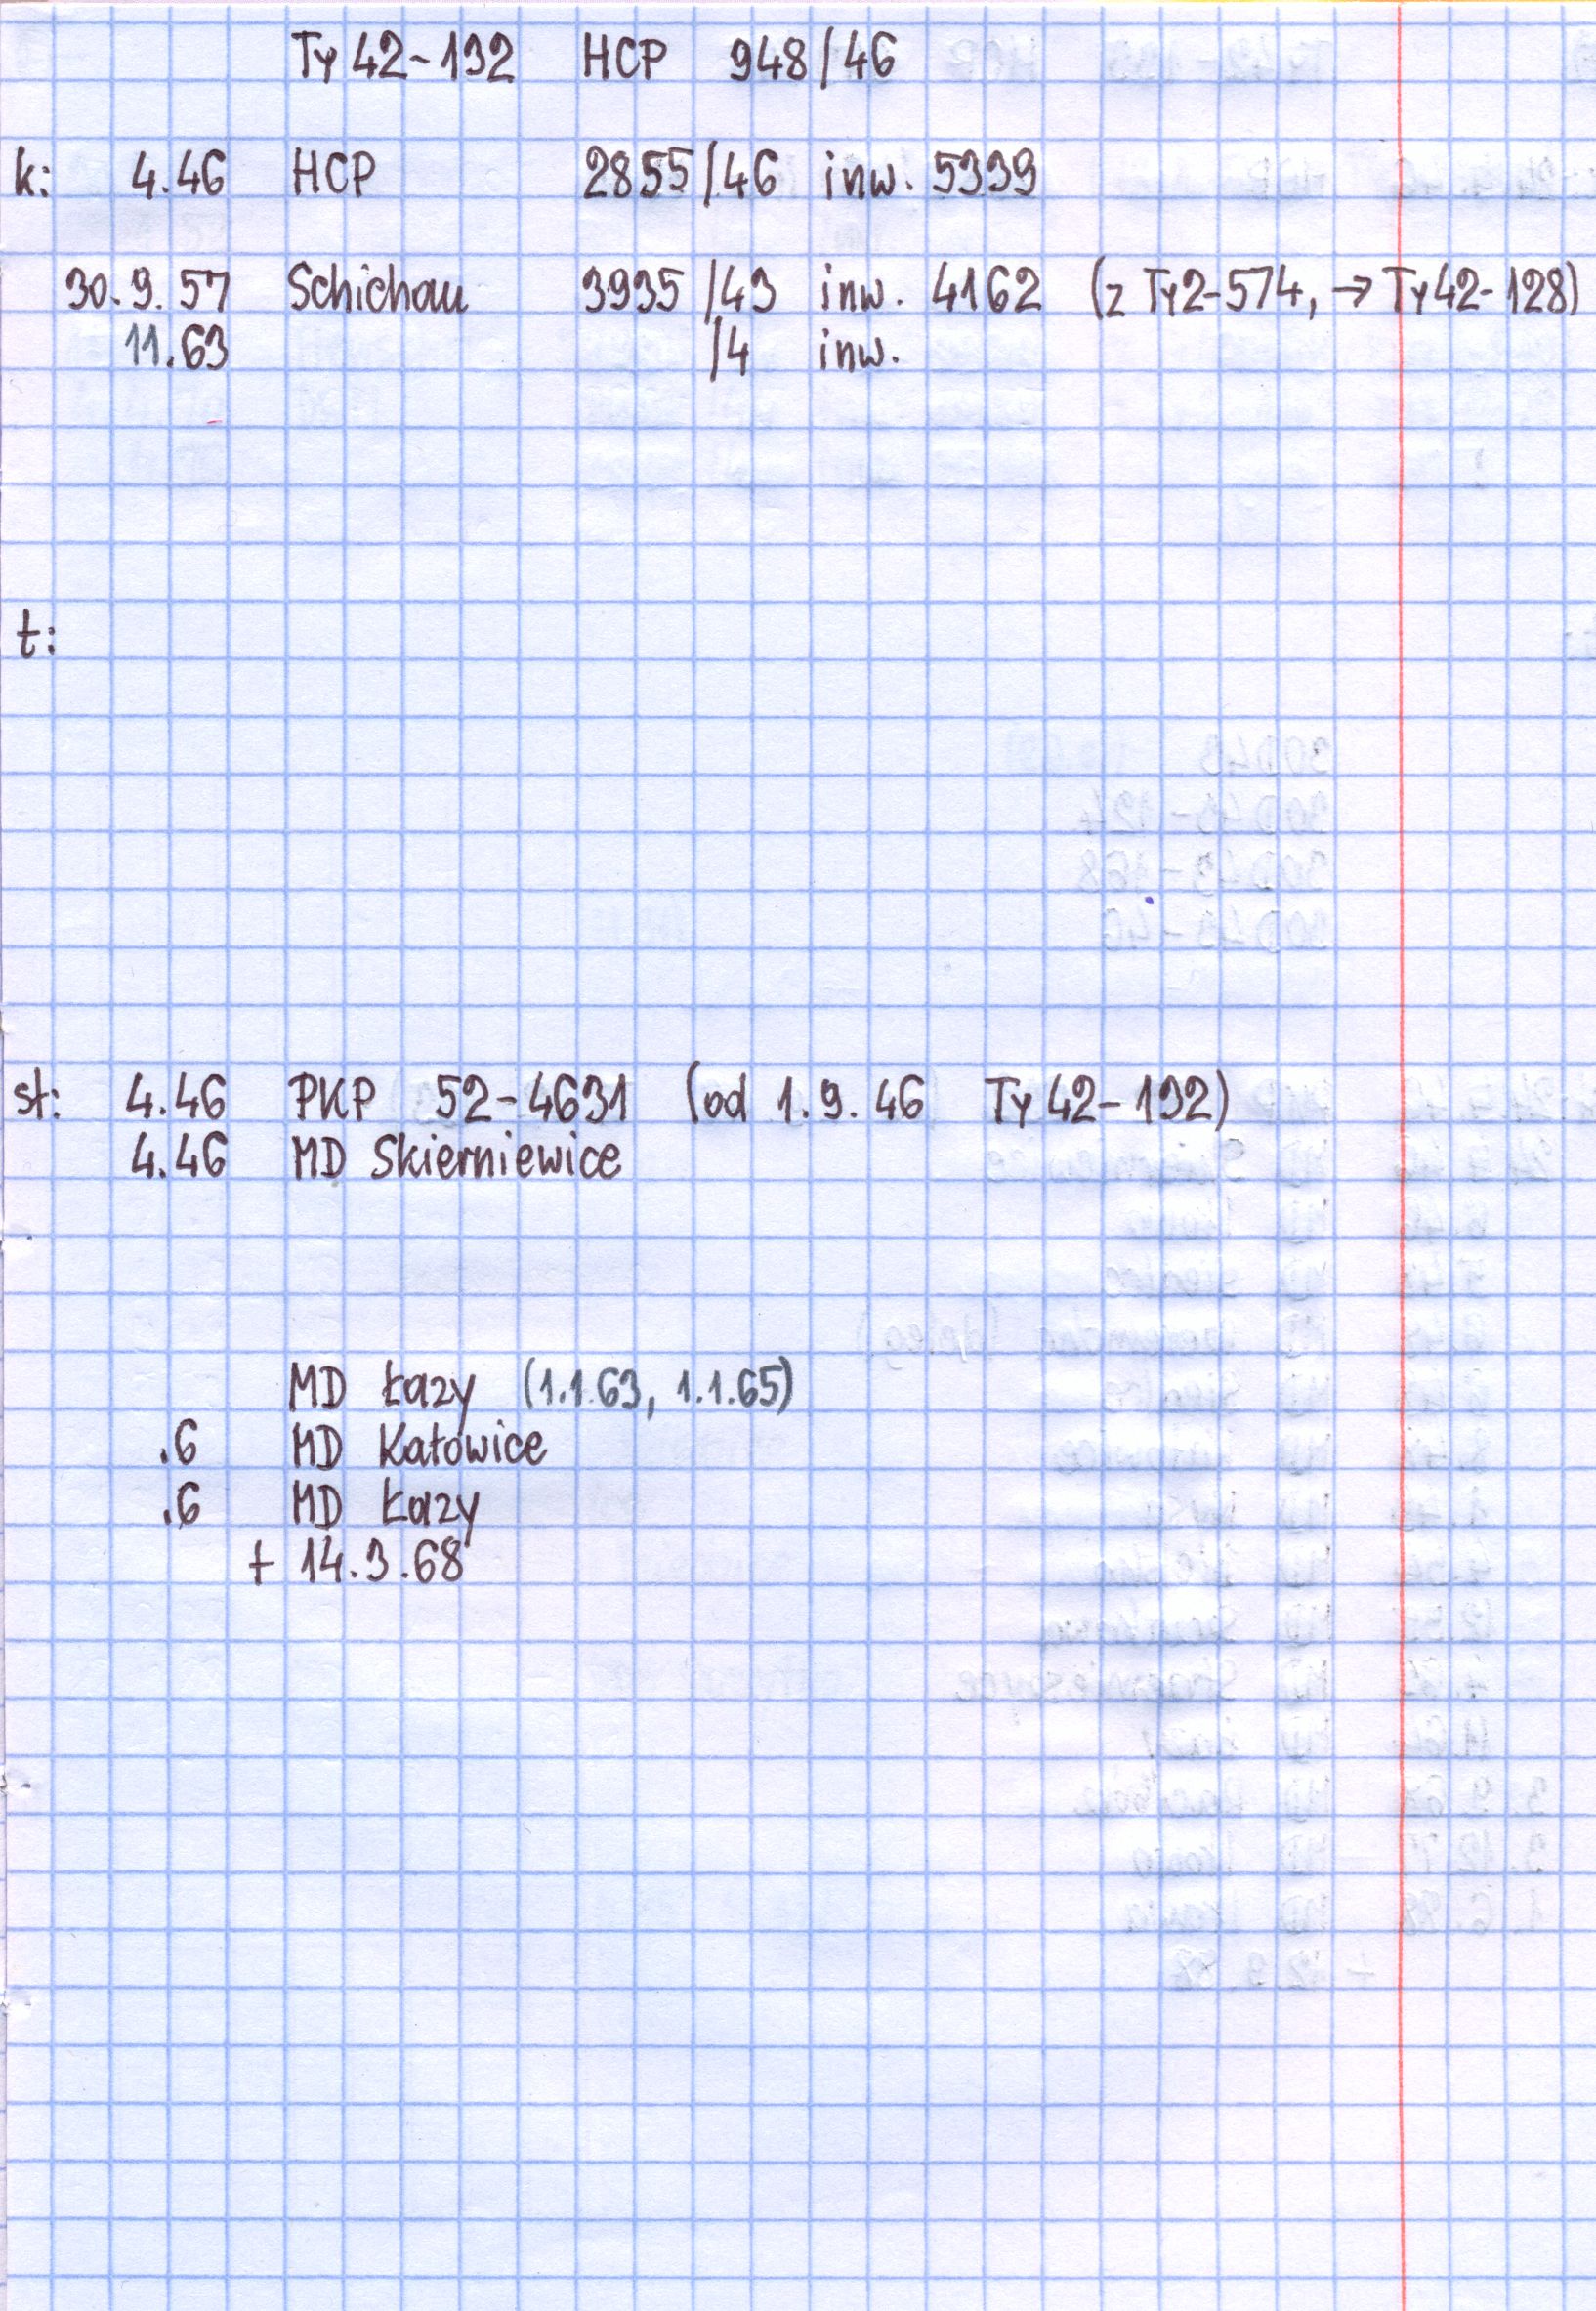 Ty42-132 HCP 948/46
k: 4.46 HCP 2855/46 inw. 5339
30.9.57 Schichau 3935/43 inw. 4162 (z Ty2-574, → Ty42-128)
11.63 /4 inw.
t:
st: 4.46 PKP 52-4631 (od 1.9.46 Ty42-132)
4.46 MD Skierniewice
MD Łazy (1.1.63, 1.1.65)
.6 MD Katowice
.6 MD Łazy
+ 14.3.68